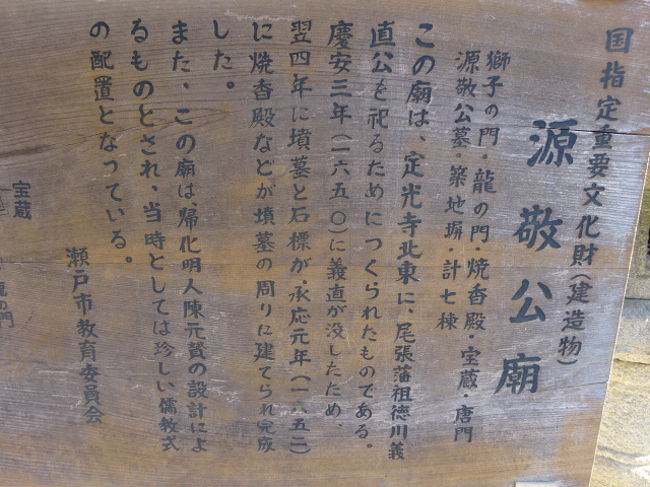 国指定重要文化財（建造物）
源敬公廟
獅子の門・龍の門・焼香殿・宝蔵・唐門
源敬公墓・築地塀・計七棟
この廟は、定光寺北東に、尾張藩祖徳川義
直公を祀るためにつくられたものである。
慶安三年（一六五〇）に義直が没したため、
翌四年に墳墓と石標が、承応元年（一六五二）
に焼香殿などが墳墓の周りに建てられ完成
した。
また、この廟は、帰化明人陳元贇の設計によ
るものとされ、当時としては珍しい儒教式
の配置となっている。
瀬戸市教育委員会
宝蔵
の門